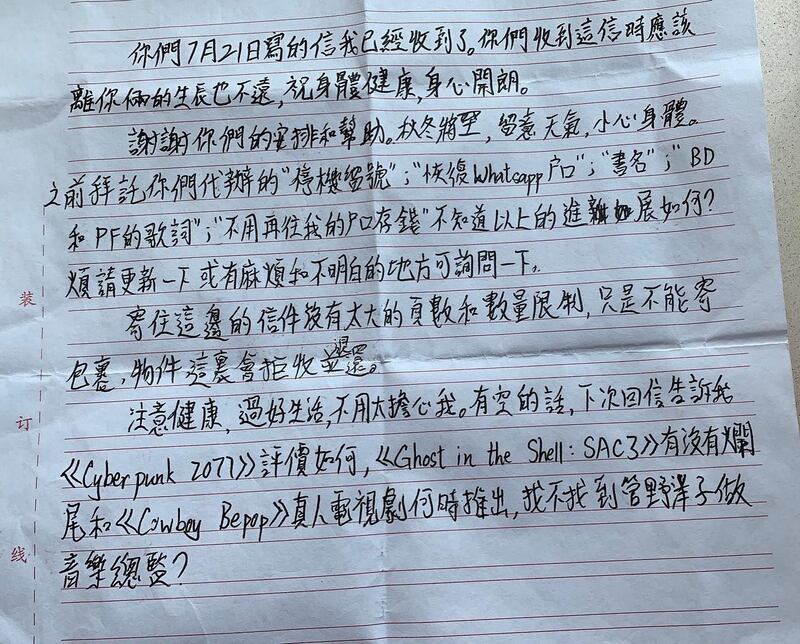 你們7月21日寫的信我已經收到了。你們收到這信時應該
離你倆的生辰也不遠，祝身體健康，身心開朗。
謝謝你們的安排和幫助。秋冬將至，留意天氣，小心身體。
之前拜託你們代辦的“停機留號”；“恢復Whatsapp戶口”；“書名”；“BD
和PF的歌詞”；“不用再往我的戶口存錢”不知道以上的進展如何？
煩請更新一下或有麻煩和不明白的地方可詢問一下。
寄住這邊的信件沒有太大的頁數和數量限制，只是不能寄
包裹，物件這裏會拒收並退還。
注意健康，過好生活，不用太擔心我。有空的話，下次回信告訴我
《Cyberpunk 2077》評價如何，《Ghost in the Shell: SAC3》有沒有爛
尾和《Cowboy Bepop》真人電視劇何時推出，找不找到管野洋子做
音樂總監？
装
订
线